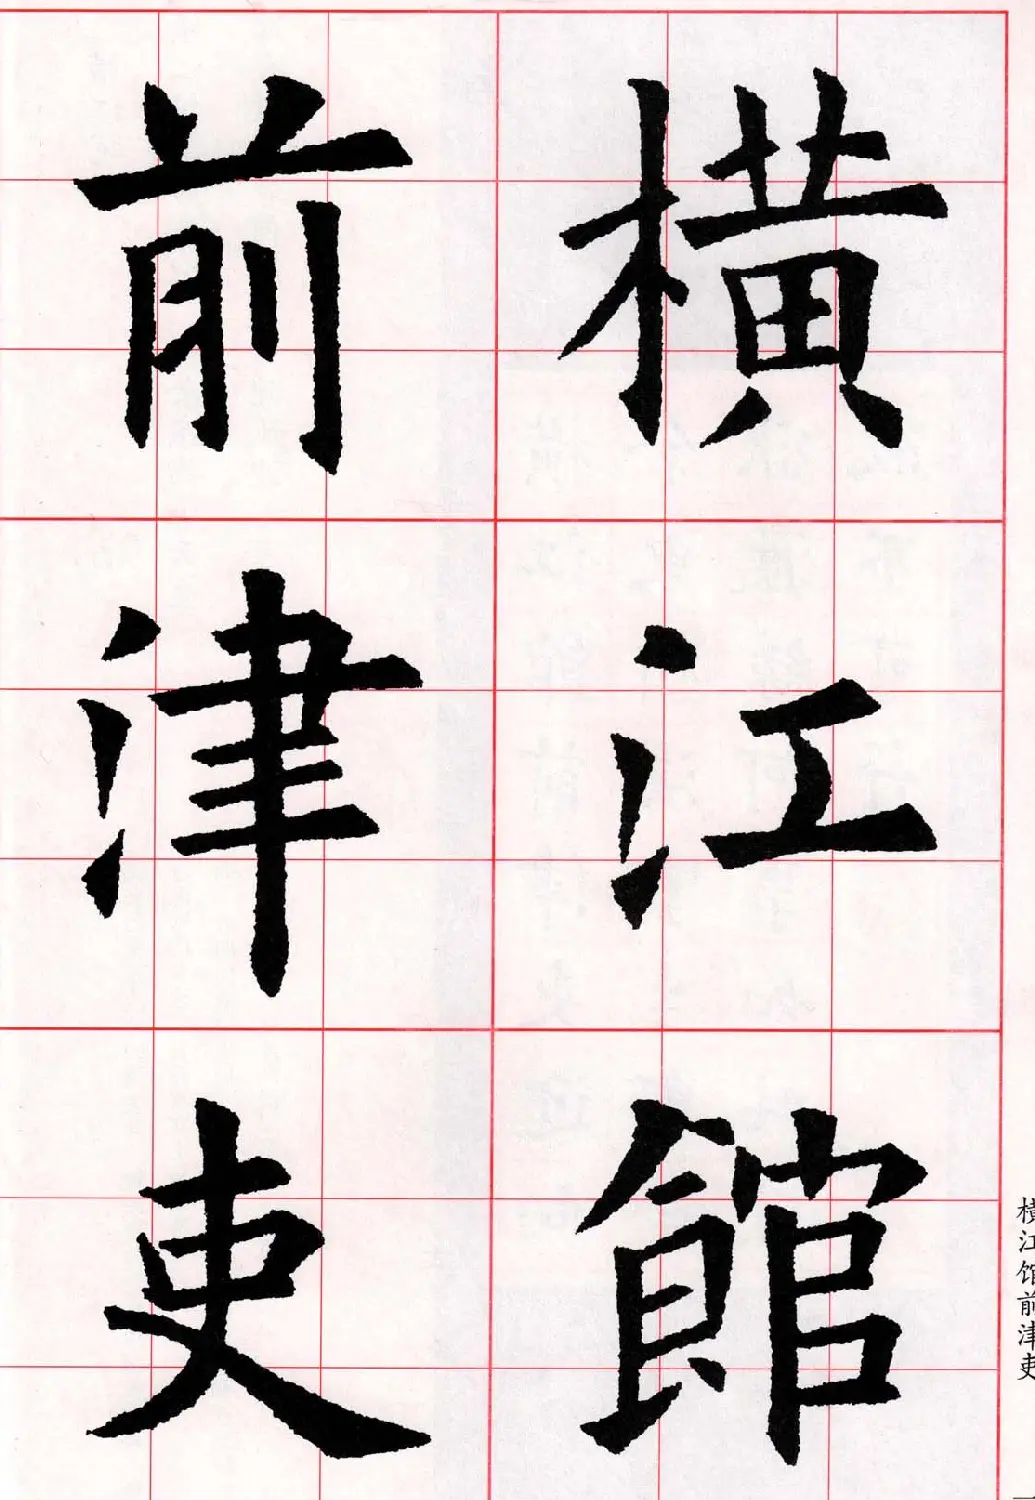 橫江館
前津吏
横江馆前津吏